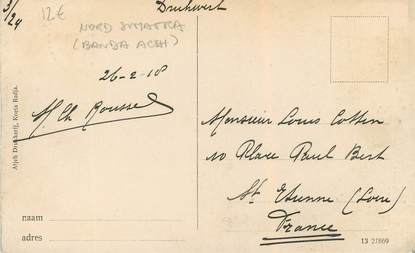 3/24
12€
NORD SUMATRA
(BANDA ACEH)
Drukwerk
26-2-18
M Ch Roussel
Atjeh Drukkerij, Koeta Radja.
Monsieur Louis Cottin
10 Place Paul Bert
St Etienne (Loire)
France
naam
adres
13 21869